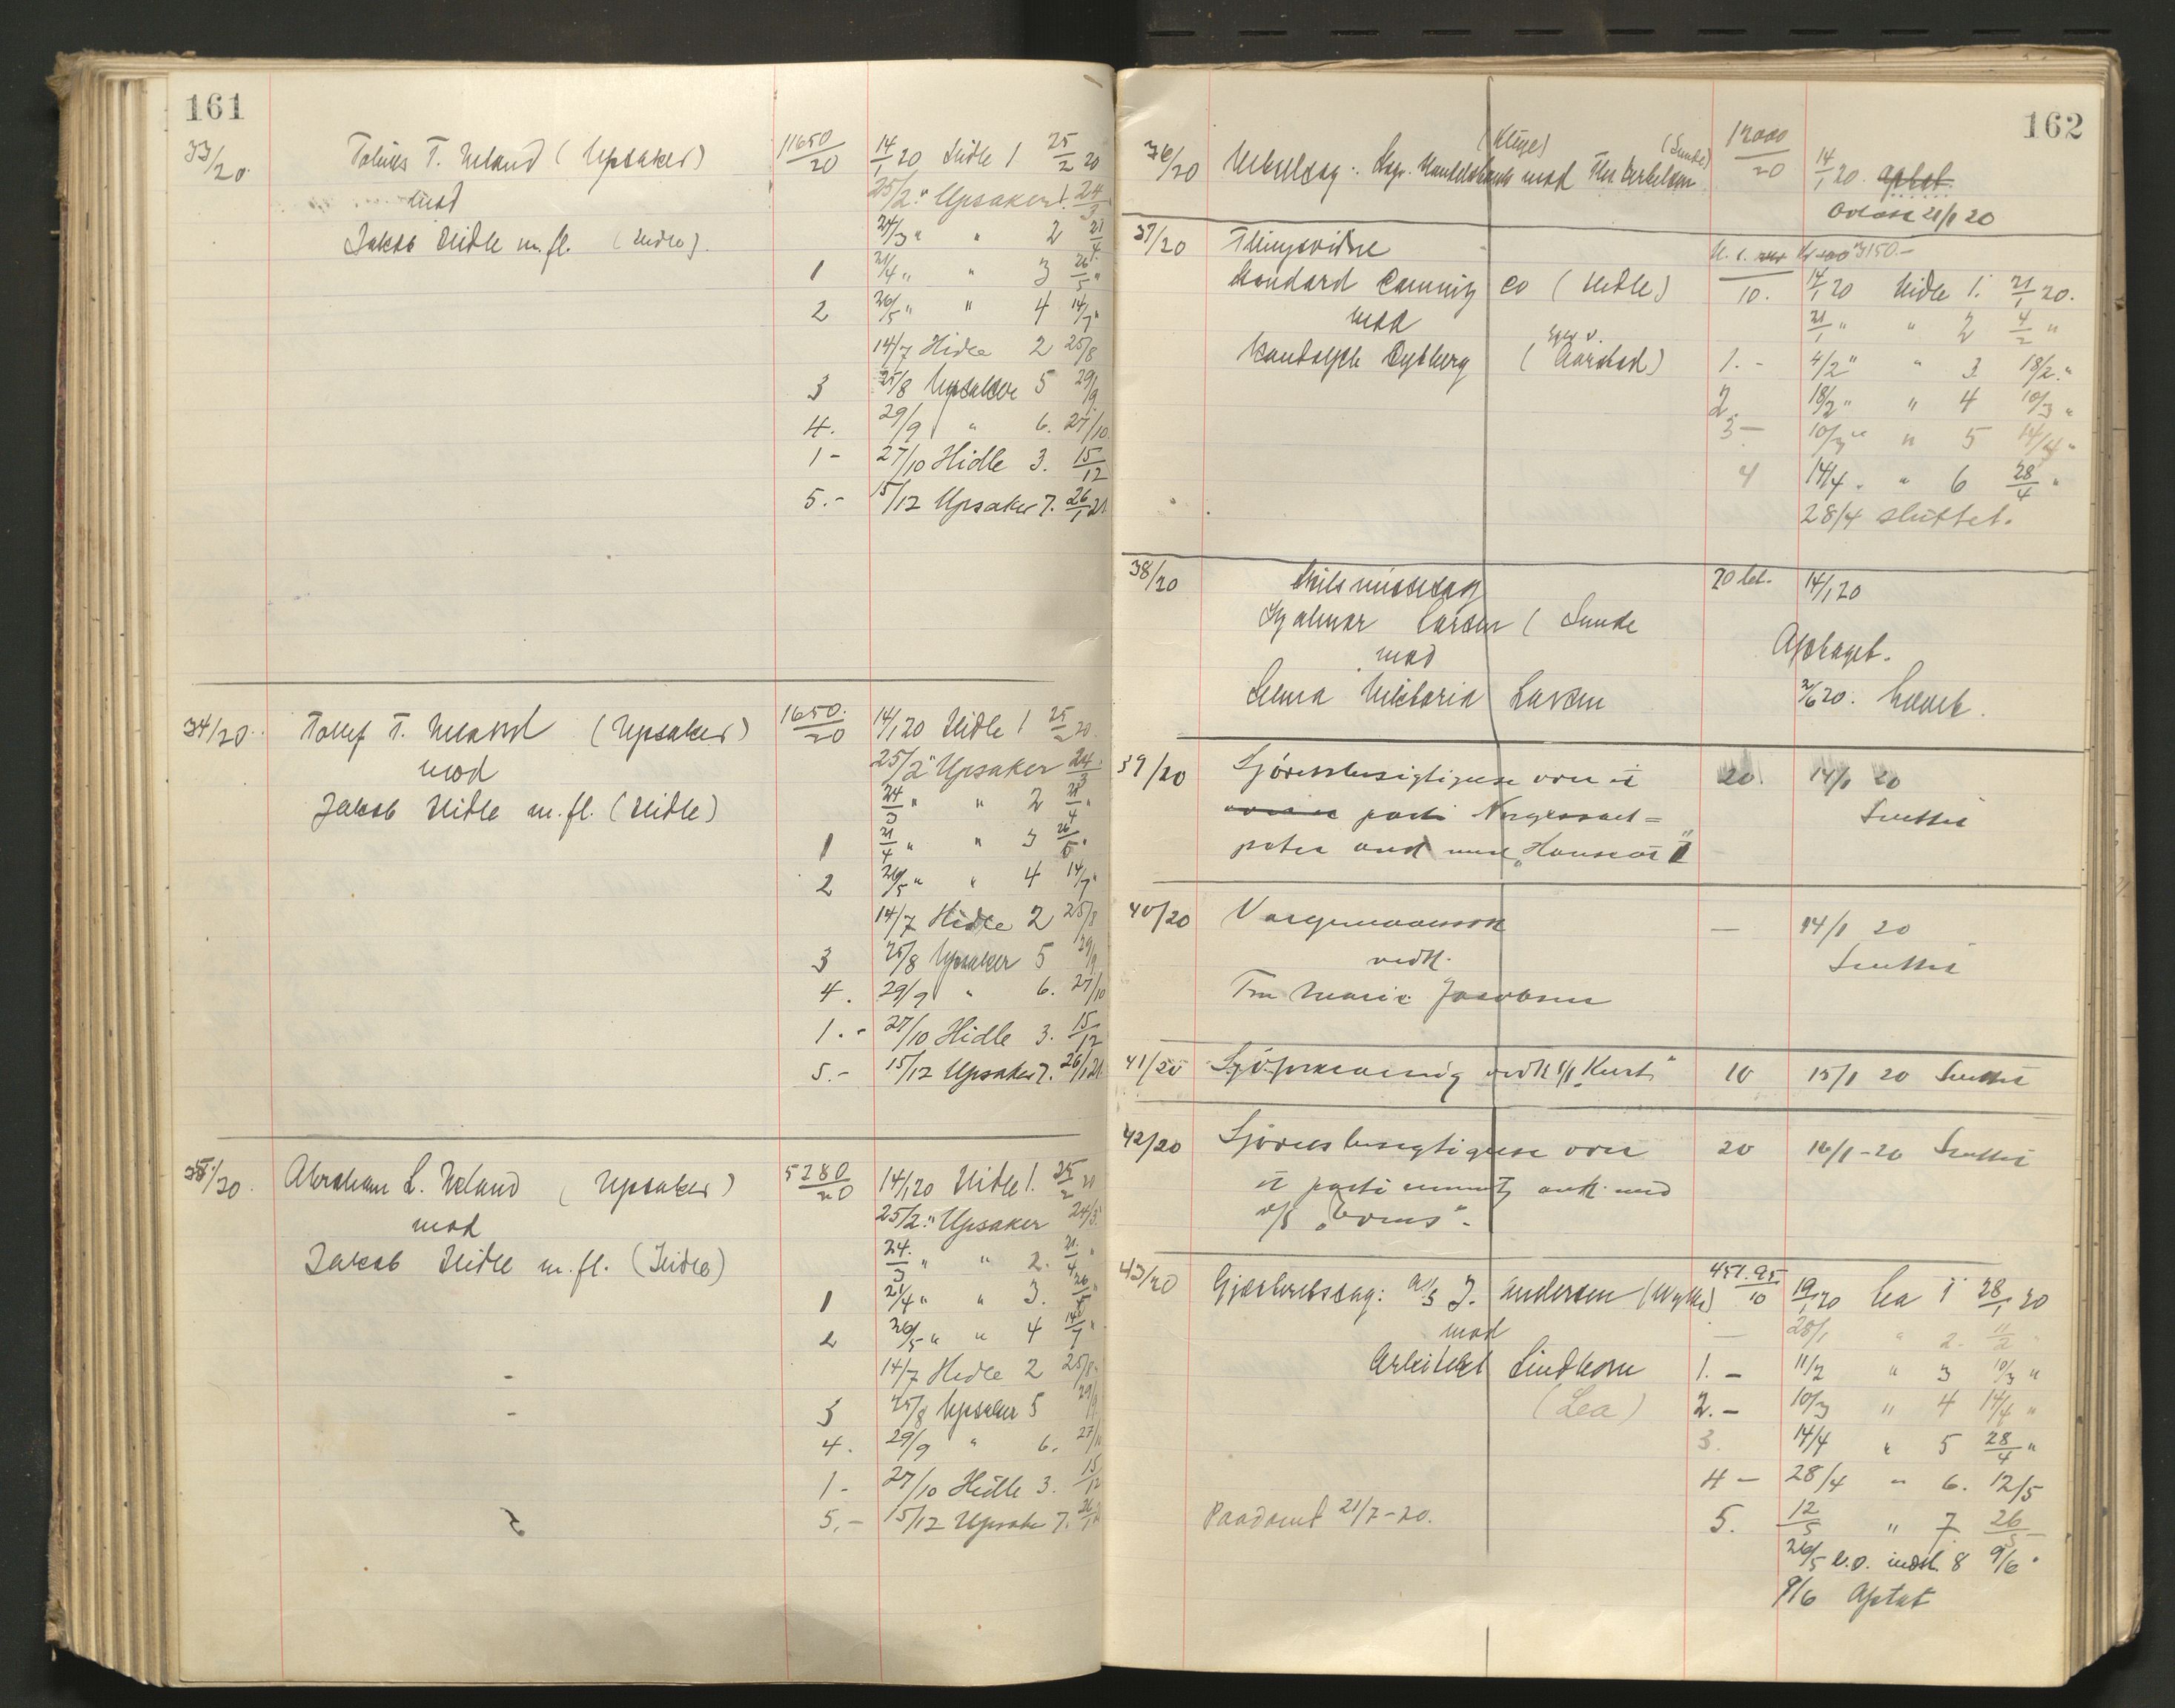 161
33/20 Tobias T. Meland (Upsaker) 11650/20 14/1 20 Hidle 1 25/2 20
mod 25/2 " Upsaker 1. 24/3
Jakob Hidle m.fl. (Hidle). 24/3 " " 2 21/4
1 21/4 " " 3 26/5 "
2 26/5 " " 4 14/7 "
14/7 Hidle 2 25/8
3 25/8 Upsaker 5 29/9
4. 29/9 " 6. 27/10
1 - 27/10 Hidle 3. 15/12
5.- 15/12 Upsaker 7. 26/1 21
34/20. Tollef T. Meland (Upsaker) 1650./20 14/1 20 Hidle 1 25/2 20.
mod 25/2 " Upsaker 24/3
Jakob Hidle m.fl. (Hidle) 24/3 " " 2 21/4 "
1 21/4 " " 3 26/5 "
2 26/5 " " 4 14/7 "
14/7 Hidle 2 25/8
3 25/8 Upsaker 5 29/9
4. 29/9 " 6. 27/10
1.- 27/10 Hidle 3. 15/12
5.- 15/12 Upsaker 7. 26/1 21
35/20. Abraham L. Meland (Upsaker) 5280/20 14/1 20 Hidle 1. 25/2 20
mod 25/2. " Upsaker 24/3.
Jakob Hidle m.fl. (Hidle) 24./3 " " 2. 21./4 "
1 21/4 " " 3. 26/5 "
2 26/5 " " 4 14/7 "
14/7 Hidle 2 25/8
3 25/8 Upsaker 5 29/9
4. 29/9 " 6. 27/10
1 - 27/10 Hidle 3. 15/12
5.- 15/12 Upsaker 7. 26/1
162
(Kluge) (Sunde)
36/20 Handelsbank mod 12000/20 14/1 20. aptat.
21/1 20
37/20 Thingsvidne 3150.-
Standard Canning Co (Hidle) 10. 14/1 20 Hidle 1. 21/1 20.
mod 21/1 " " 2 4/2 "
Randolph Rydberg (Aarstad) 1.- 4/2 " " 3 18/2. "
2. 18/2 " " 4 10/3 "
3- 10/3 " " 5 14/4 "
4 14/4 " " 6 28/4 "
28/4 sluttet.
38/20 Skilsmissesag 20 14/1 20
Hjalmar Larsen (Sunde
mod Afsaget.
Selma Viktoria Larsen 2/6 20. hævet.
39/20 Sjørettsbesigtigelse over et 20. 14/1 20
parti Norgessal= Sluttet
peter ank med "Haugar II"
40/20 Værgemaalssak — 14/1 20
vedk. Sluttet
Fru Marie Jacobsen
41/20 Sjøforklaring vedk s/s "Kurt" 10 15/1 20 Sluttet
42/20 Sjørettsbesigtigelse over 20 16/1-20 Sluttet
et parti ank. med
s/s
43/20 Gjæsteretssag: A/S J. Andersen 451.95/10 19/1 20 Lea 1 28/1 20
mod — 28/1 " 2. 11/2
Arkitekt Lindhom 1.- 11/2 " 3 10/3 "
(Lea) 2.- 10/3 " 4 14/4 "
3. 14/4 " 5 28/4 "
4 - 28/4 " 6. 12/5
Paadømt 21/7-20. 5. 12/5 " 7 26/5
26/5 8 9/6.
9/6 Aptat